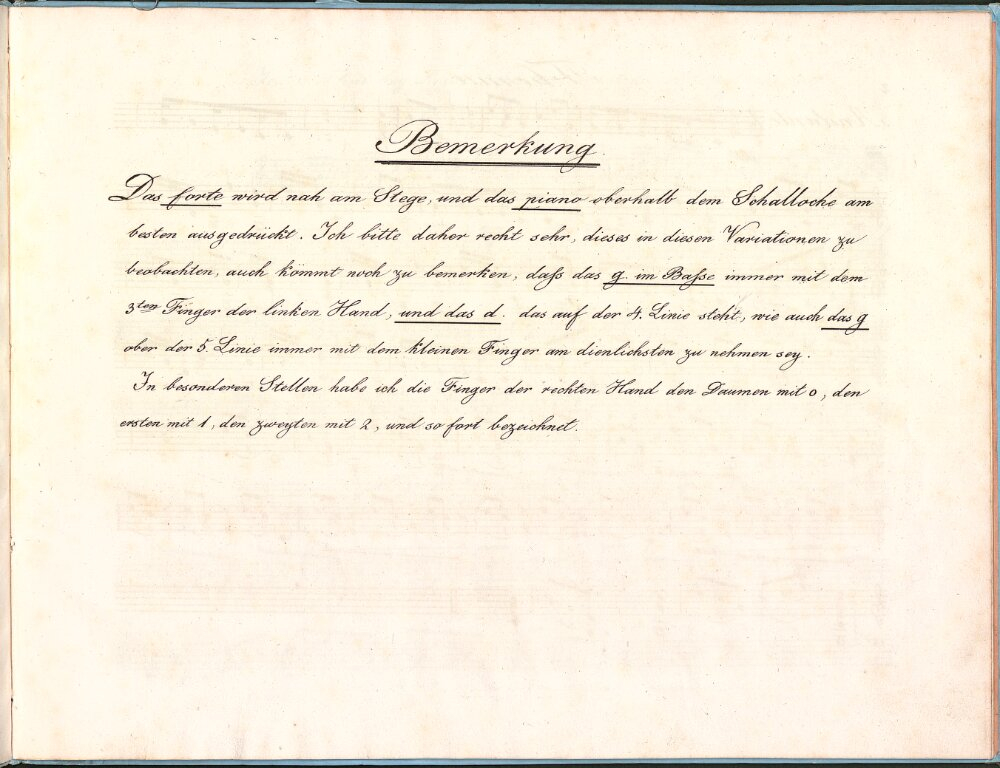 Bemerkung
Das forte wird nah am Stege, und das piano oberhalb dem Schalloche am
besten ausgedrückt. Ich bitte daher recht sehr, dieses in diesen Variationen zu
beobachten, auch kömmt noch zu bemerken, daſs das g. im Baſse immer mit dem
3ten Finger der linken Hand, und das d. das auf der 4. Linie steht, wie auch das g
ober der 5. Linie immer mit dem kleinen Finger am dienlichsten zu nehmen sey.
In besonderen Stellen habe ich die Finger der rechten Hand den Daumen mit 0, den
ersten mit 1, den zweyten mit 2, und so fort bezeichnet.